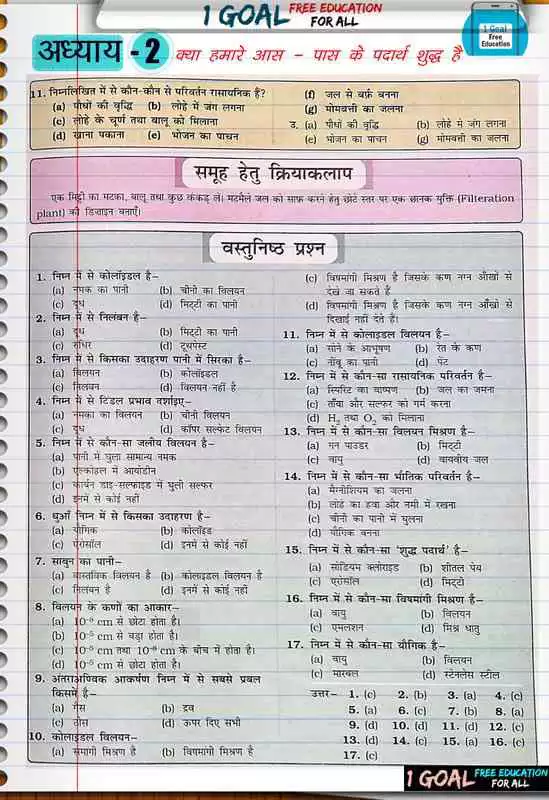 1 GOAL FREE EDUCATION FOR ALL
1 Goal
Free
Education
अध्याय - 2 क्या हमारे आस - पास के पदार्थ शुद्ध है
11. निम्नलिखित में से कौन-कौन से परिवर्तन रासायनिक हैं?
(a) पौधों की वृद्धि (b) लोहे में जंग लगना
(c) लोहे के चूर्ण तथा बालू को मिलाना
(d) खाना पकाना (e) भोजन का पाचन
(f) जल से बर्फ़ बनना
(g) मोमबत्ती का जलना
उ. (a) पौधों की वृद्धि (b) लोहे में जंग लगना
(e) भोजन का पाचन (g) मोमबत्ती का जलना
समूह हेतु क्रियाकलाप
एक मिट्टी का मटका, बालू तथा कुछ कंकड़ लें। मटमैले जल को साफ़ करने हेतु छोटे स्तर पर एक छानक युक्ति (Filteration
plant) का डिज़ाइन बनाएँ।
वस्तुनिष्ठ प्रश्न
1. निम्न में से कोलॉइडल है–
(a) नमक का पानी (b) चीनी का विलयन
(c) दूध (d) मिट्टी का पानी
2. निम्न में से निलंबन है–
(a) दूध (b) मिट्टी का पानी
(c) रुधिर (d) टूथपेस्ट
3. निम्न में से किसका उदाहरण पानी में सिरका है–
(a) विलयन (b) कोलॉइडल
(c) निलंबन (d) विलयन नहीं है
4. निम्न में से टिंडल प्रभाव दर्शाइए–
(a) नमक का विलयन (b) चीनी विलयन
(c) दूध (d) कॉपर सल्फेट विलयन
5. निम्न में से कौन-सा जलीय विलयन है–
(a) पानी में घुला सामान्य नमक
(b) एल्कोहल में आयोडीन
(c) कार्बन डाइ-सल्फाइड में घुली सल्फर
(d) इनमें से कोई नहीं
6. धुआँ निम्न में से किसका उदाहरण है–
(a) यौगिक (b) कोलॉइड
(c) ऐरोसॉल (d) इनमें से कोई नहीं
7. साबुन का पानी–
(a) वास्तविक विलयन है (b) कोलाइडल विलयन है
(c) निलंबन है (d) इनमें से कोई नहीं
8. विलयन के कणों का आकार–
(a) 10⁻⁹ cm से छोटा होता है।
(b) 10⁻⁵ cm से बड़ा होता है।
(c) 10⁻⁵ cm तथा 10⁻⁸ cm के बीच में होता है।
(d) 10⁻⁵ cm से छोटा होता है।
9. अंतराअण्विक आकर्षण निम्न में से सबसे प्रबल
किसमें है–
(a) गैस (b) द्रव
(c) ठोस (d) ऊपर दिए सभी
10. कोलाइडल विलयन–
(a) समांगी मिश्रण है (b) विषमांगी मिश्रण है
(c) विषमांगी मिश्रण है जिसके कण नग्न आँखों से
देखे जा सकते हैं
(d) विषमांगी मिश्रण है जिसके कण नग्न आँखों से
दिखाई नहीं देते हैं।
11. निम्न में से कोलाइडल विलयन है–
(a) सोने के आभूषण (b) रेत के कण
(c) नींबू का पानी (d) पेंट
12. निम्न में से कौन-सा रासायनिक परिवर्तन है–
(a) स्पिरिट का वाष्पण (b) जल का जमना
(c) ताँबा और सल्फर को गर्म करना
(d) H₂ तथा O₂ को मिलाना
13. निम्न में से कौन-सा विलयन मिश्रण है–
(a) गन पाउडर (b) मिट्टी
(c) वायु (d) वायवीय जल
14. निम्न में से कौन-सा भौतिक परिवर्तन है–
(a) मैग्नीशियम का जलना
(b) लोहे का हवा और नमी में रखना
(c) चीनी का पानी में घुलना
(d) यौगिक बनना
15. निम्न में से कौन-सा 'शुद्ध पदार्थ' है–
(a) सोडियम क्लोराइड (b) शीतल पेय
(c) एरोसॉल (d) मिट्टी
16. निम्न में से कौन-सा विषमांगी मिश्रण है–
(a) वायु (b) विलयन
(c) एमलशन (d) मिश्र धातु
17. निम्न में से कौन-सा यौगिक है–
(a) वायु (b) विलयन
(c) मारबल (d) स्टेनलेस स्टील
उत्तर– 1. (c) 2. (b) 3. (a) 4. (c)
5. (a) 6. (c) 7. (b) 8. (a)
9. (d) 10. (d) 11. (d) 12. (c)
13. (d) 14. (c) 15. (a) 16. (c)
17. (c)
1 GOAL FREE EDUCATION FOR ALL